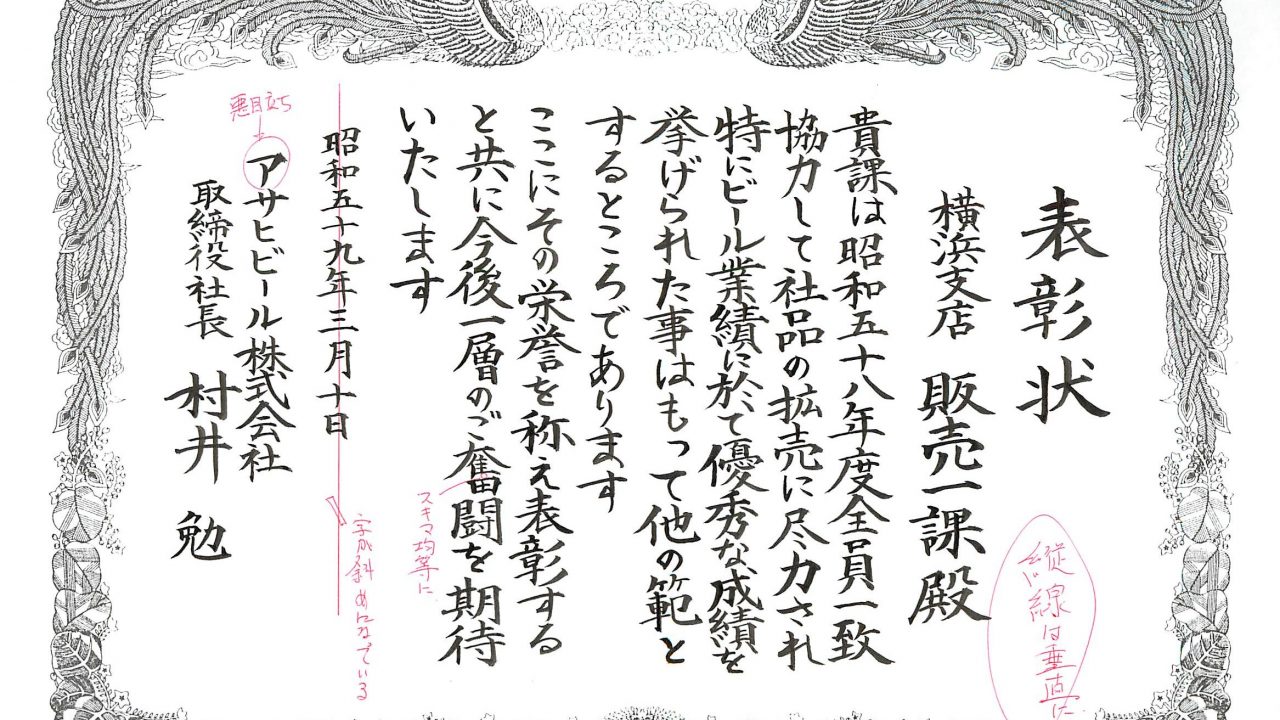 表彰状
横浜支店 販売一課殿
貴課は昭和五十八年度全員一致
協力して社品の拡売に尽力され
特にビール業績に於て優秀な成績を
挙げられた事はもって他の範と
するところであります
ここにその栄誉を称え表彰する
と共に今後一層のご奮闘を期待
いたします
昭和五十九年三月十日
アサヒビール株式会社
取締役社長 村井 勉
縦線は垂直に
スキマ均等に
字が斜めになっている
悪目立ち